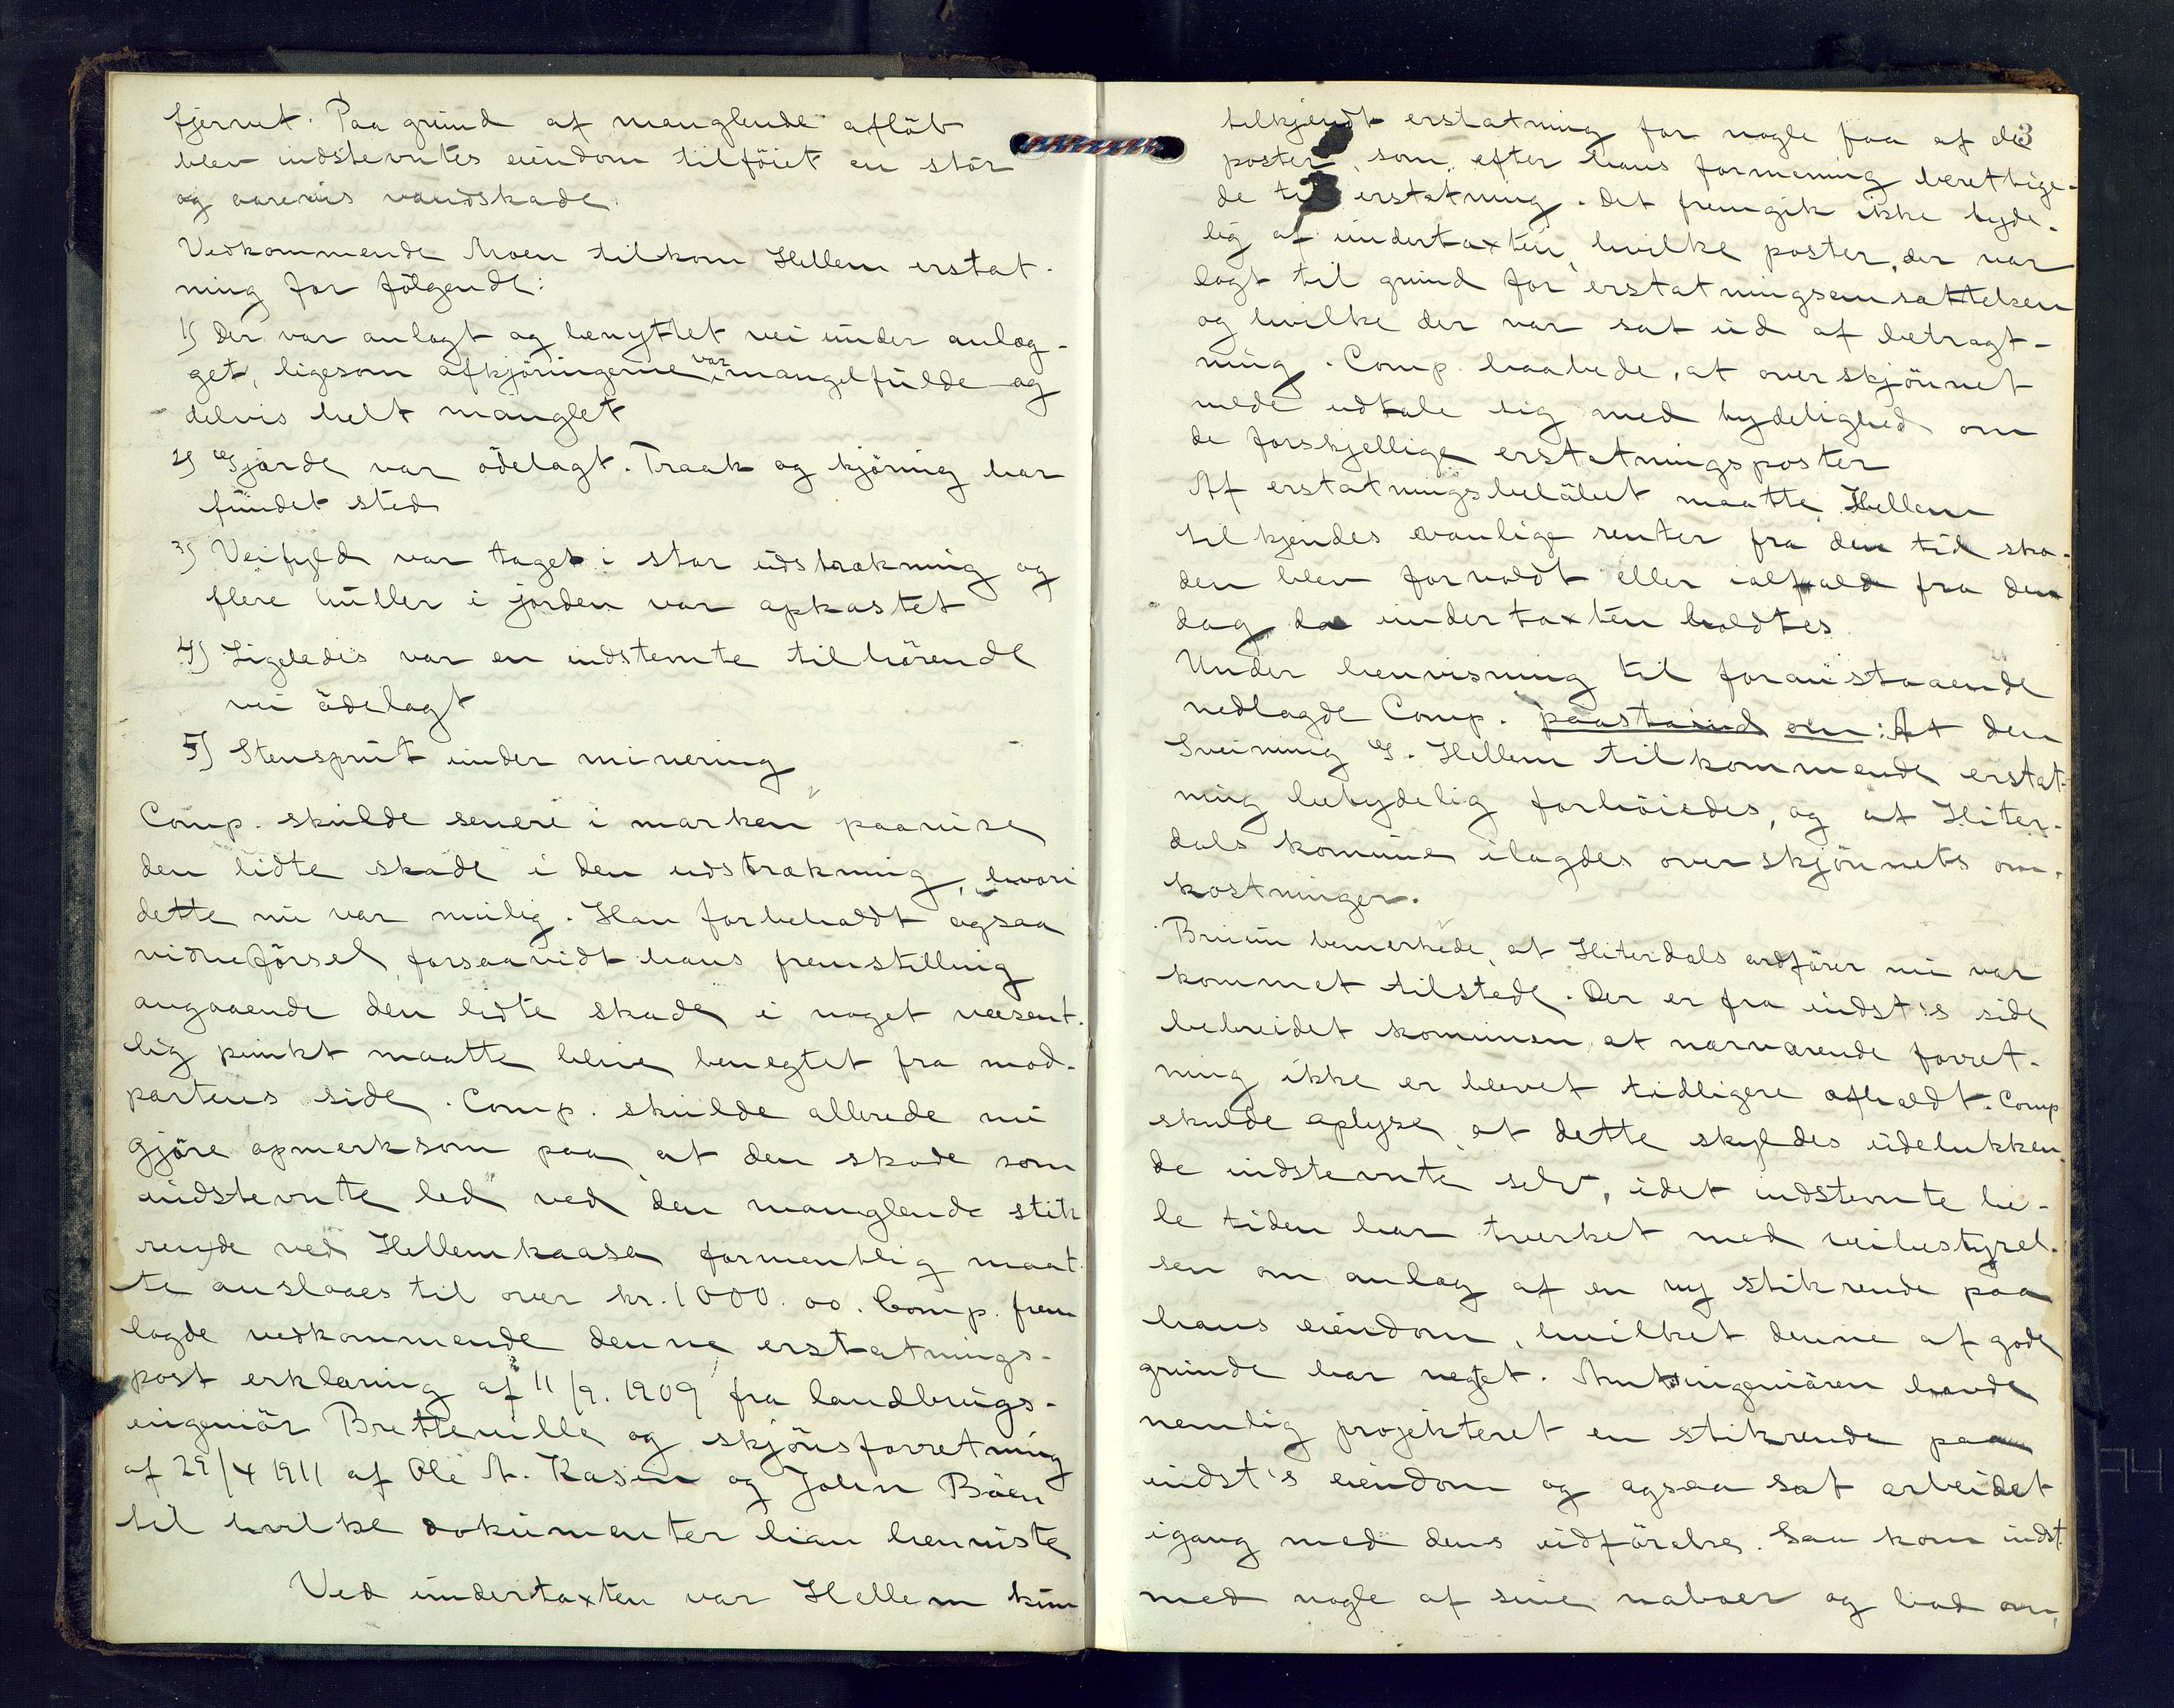 fjernet. Paa grund af manglende afløb
blev indstevntes eiendom tilføiet en stor
og aarevis vandskade
Vedkommende Moen tilkom Hellem erstat-
ning for følgende:
1) Der var anlagt og benyttet vei under anlæg-
get, ligesom afkjøringerne var mangelfulde og
delvis helt manglet
2) Gjærde var ødelagt. Traak og kjøring har
fundet sted
3) Veifyld var taget i stor udstrækning og
flere huller i jorden var opkastet
4) Ligeledes var en indstevnte tilhørende
vei ødelagt
5) Stensprut under minering
Comp. skulde senere i marken paavise
den lidte skade i den udstrækning, hvori
dette nu var mulig. Han forbeholdt ogsaa
vidneførsel, forsaavidt hans fremstilling
angaaende den lidte skade i noget væsent-
lig punkt maatte blive benegtet fra mod-
partens side. Comp. skulde allerede nu
gjøre opmerksom paa at den skade som
indstevnte led ved den manglende stik
rende ved Hellemkaasa formentlig maat-
te anslaaes til over kr. 1000.00. Comp. frem
lagde vedkommende denne erstatnings-
post erklæring af 11/9. 1909 fra landbrugs-
ingeniør Bretteville og skjønsforretning
af 29/4 1911 af Ole A. Kasin og John Bøen
til hvilke dokumenter han henviste
Ved undertaxten var Hellem kun
3
tilkjendt erstatning for nogle faa af de
poster, som efter hans formening berettige-
de til erstatning. Det fremgik ikke tyde-
lig af undertaxten, hvilke poster, der var
lagt til grund for erstatningsansættelsen
og hvilke der var sat ud af betragt-
ning. Comp. haabede, at overskjønnet
vilde udtale sig med tydelighed om
de forskjellige erstatningsposter
Af erstatningsbeløbet maatte Hellem
tilkjendes vanlige renter fra den tid ska-
den blev forvoldt eller ialfald fra den
dag da undertaxten holdtes.
Under henvisning til foranstaaende
nedlagde Comp. paastand om: At den
Sveinung G. Hellem tilkommende erstat-
ning betydelig forhøiedes, og at Hiter-
dals komune ilagdes overskjønnets om-
kostninger.
Bruun bemerkede, at Hiterdals ordfører nu var
kommet tilstede. Der er fra indst's side
bebreidet komunen, at nærværende forret-
ning ikke er blevet tidligere afholdt. Comp
skulde oplyse, at dette skyldes udelukken-
de indstevnte selv, idet indstevnte he-
le tiden har tverket med veibestyrel-
sen om anlæg af en ny stikrende paa
hans eiendom, hvilket denne af gode
grunde har neget. Amtsingeniøren havde
nemlig projekteret en stikrende paa
indst's eiendom og ogsaa sat arbeidet
igang med dens udførelse. Saa kom indst.
med nogle af sine naboer og bad om,